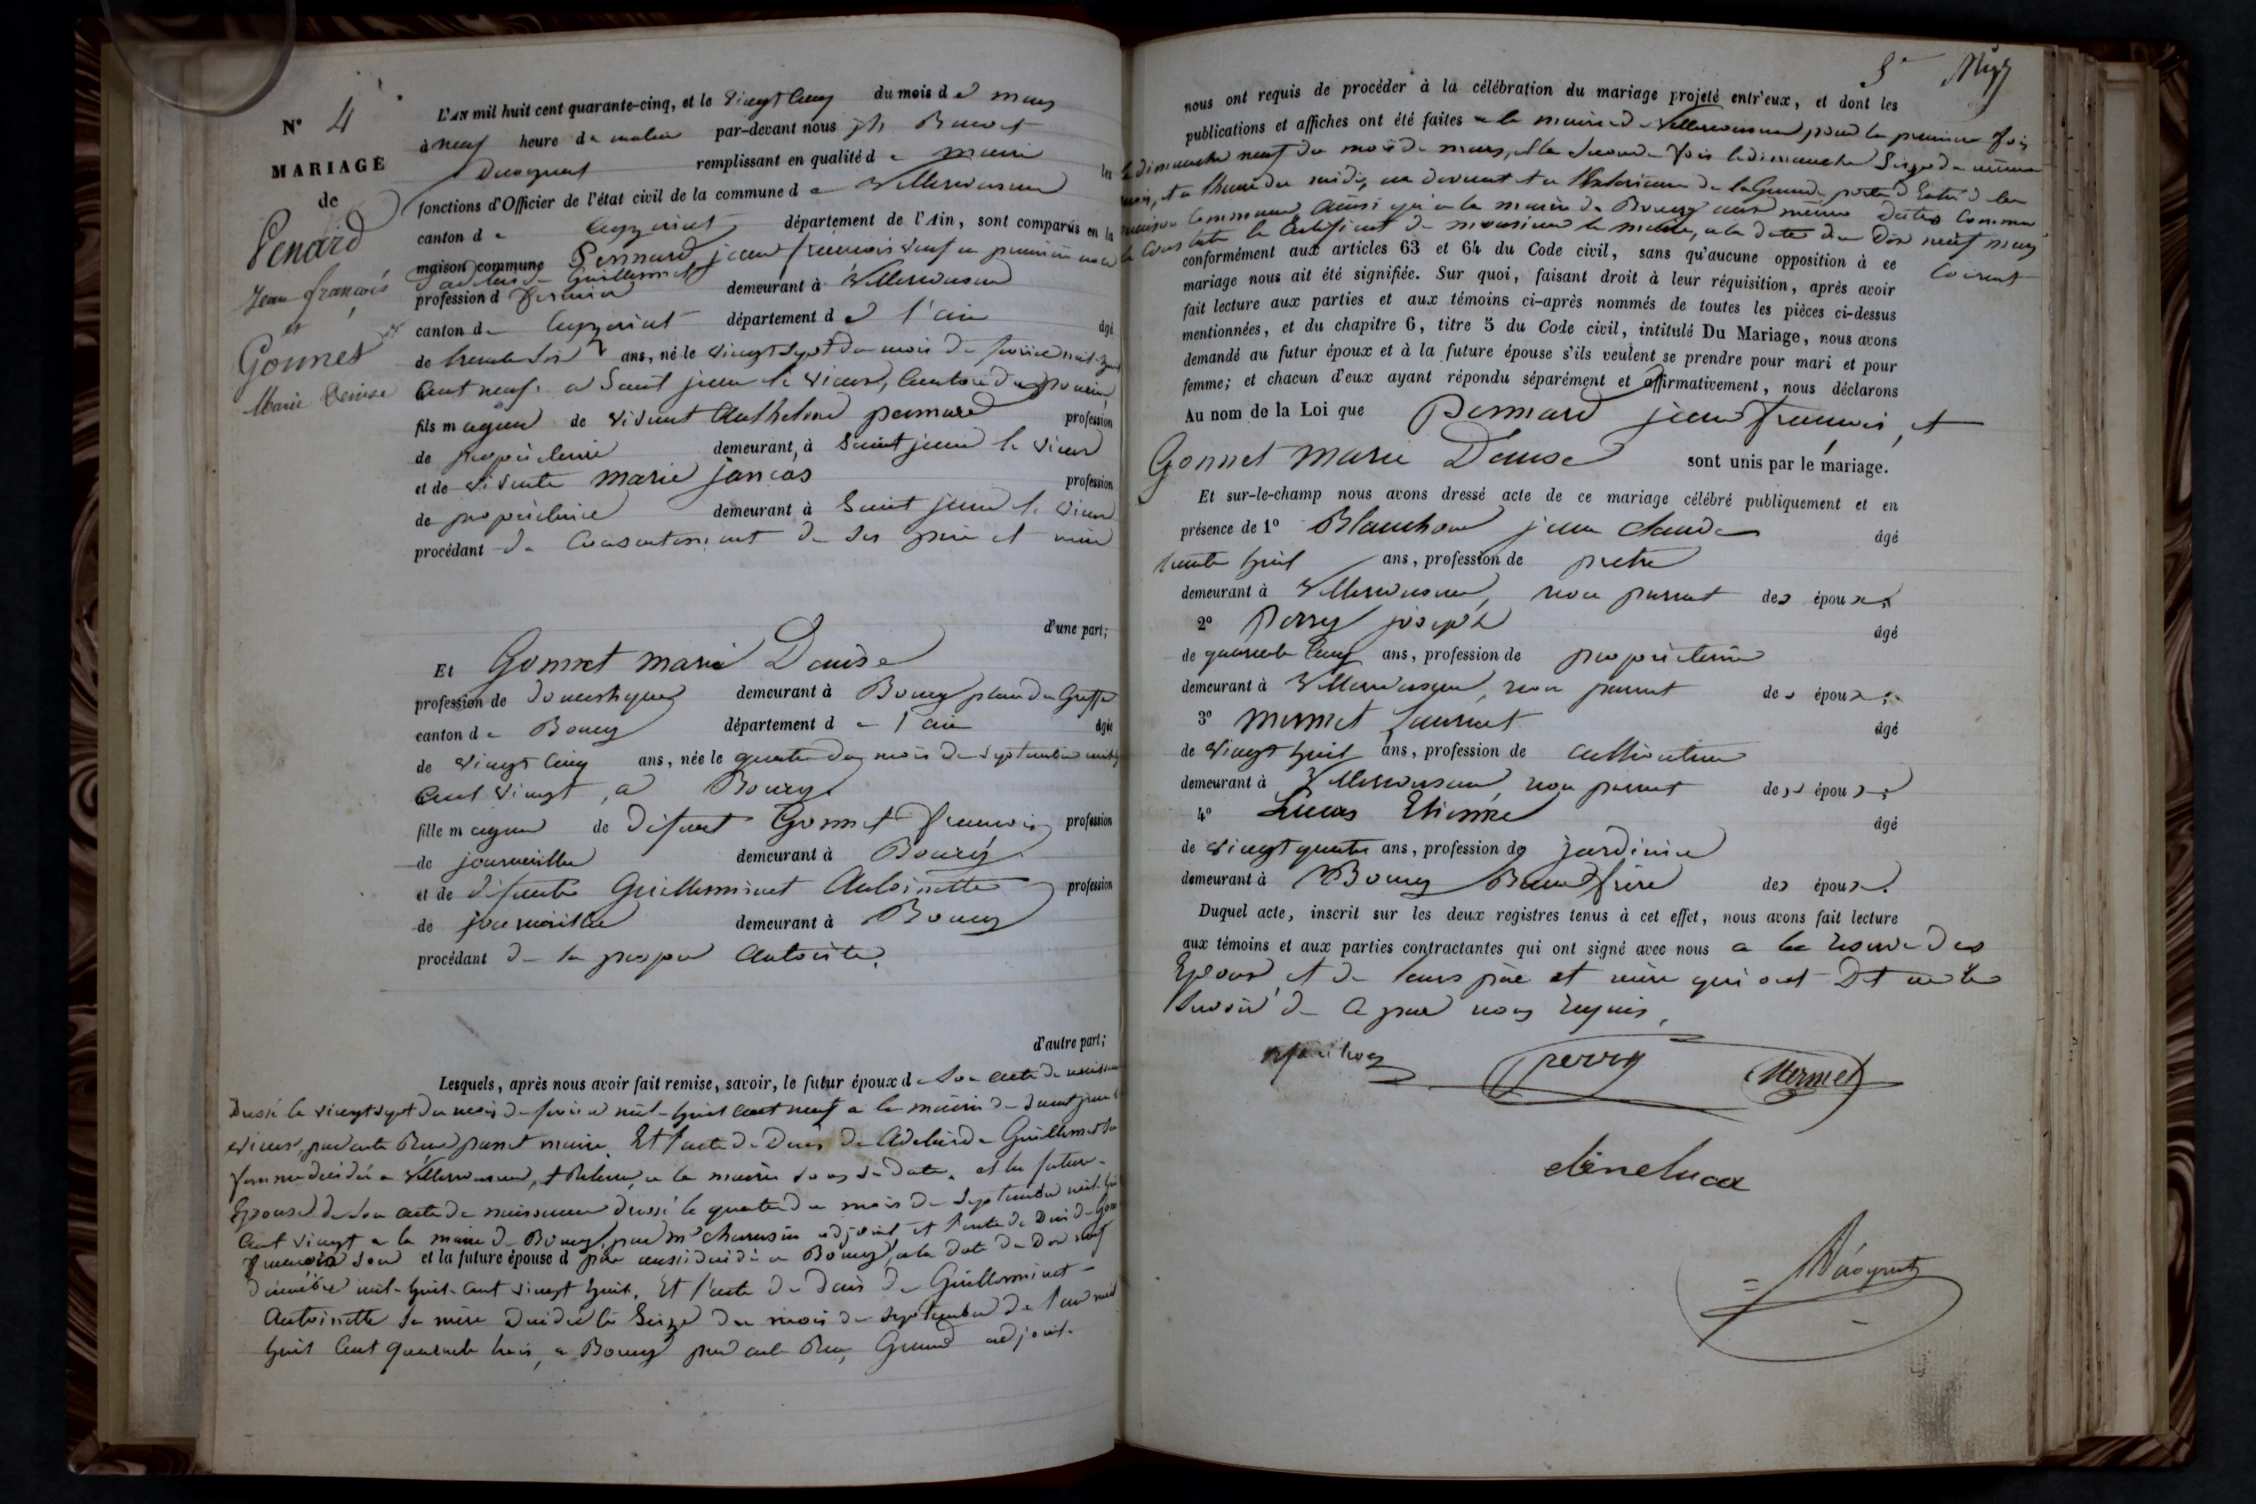 N° 4
MARIAGE
de
Penard
Jean françois
et
Gonnet
Marie Denise
L'AN mil huit cent quarante-cinq, et le vingt cinq du mois de mars
à neuf heure du matin par-devant nous jh
remplissant en qualité de maire les
fonctions d'Officier de l'état civil de la commune de Villereversure
canton de Ceyzeriat département de l'Ain, sont comparus en la
maison commune Pennard jean francois veuf en première noce
d'adelaide Guillermet
profession d demeurant à Villereversure
canton de Ceyzeriat département de l'ain âgé
de trente six ans, né le vingt sept du mois de fevrier mil huit
cent neuf à Saint jean le vieux, canton de
fils majeur de vivant Anthelme pennard profession
de propriétaire demeurant à Saint jean le vieux
et de vivante marie jancos profession
de propriétaire demeurant à Saint jean le vieux
procédant du consentement de ses père et mère
d'une part;
Et Gonnet marie Denise
profession de domestique demeurant à Bourg place du Greffe
canton de Bourg département de l'ain âgée
de vingt cinq ans, née le quatre du mois de septembre mil huit
cent vingt, à Bourg
fille majeur de défunt Gonnet francois profession
de journaillier demeurant à Bourg
et de défunte Guillerminet Antoinette profession
de journaillère demeurant à Bourg
procédant de sa propre autorité.
d'autre part;
Lesquels, après nous avoir fait remise, savoir, le futur époux de son acte de naissance
Dressé le vingt sept du mois de fevrier mil-huit cent neuf a la mairie de Saint jean le
vieux, par maire. Et l'acte de décès de Adelaide Guillermet sa
femme décédée a Villereversure, a la mairie sous sa date. et la future
Epouse de son acte de naissance dressé le quatre du mois de septembre mil huit
cent vingt a la mairie de Bourg, par mr adjoint et l'acte de décès de Gonnet
francois son et la future épouse d père aussi décédé a Bourg, a la date du dix neuf
décembre mil-huit-cent vingt huit. Et l'acte de décès de Guillerminet
Antoinette sa mère décédée le Seize du mois de septembre de l'an mil
huit cent quarante trois, a Bourg par Grand adjoint.
5e
nous ont requis de procéder à la célébration du mariage projeté entr'eux, et dont les
publications et affiches ont été faites a la mairie de Villereversure pour la première fois
le dimanche neuf du mois de mars, et la seconde fois le dimanche Seize du même
mois, et a l'heure de midi, au devant et a l'extérieur de la Grande porte d'Entrée de la
maison commune, ainsi qu'a la mairie de Bourg aux même dates comme
le constate le certificat de monsieur le maire, a la date du dix neuf mars
courant
conformément aux articles 63 et 64 du Code civil, sans qu'aucune opposition à ce
mariage nous ait été signifiée. Sur quoi, faisant droit à leur réquisition, après avoir
fait lecture aux parties et aux témoins ci-après nommés de toutes les pièces ci-dessus
mentionnées, et du chapitre 6, titre 5 du Code civil, intitulé Du Mariage, nous avons
demandé au futur époux et à la future épouse s'ils veulent se prendre pour mari et pour
femme; et chacun d'eux ayant répondu séparément et affirmativement, nous déclarons
Au nom de la Loi que Pennard jean francois, et
Gonnet Marie Denise sont unis par le mariage.
Et sur-le-champ nous avons dressé acte de ce mariage célébré publiquement et en
présence de 1° Blanchon jean claude âgé
trente huit ans, profession de pretre
demeurant à Villereversure, non parent des époux;
2° Perry joseph âgé
de quarante cinq ans, profession de propriétaire
demeurant à Villereversure, non parent des époux;
3° Mermet Laurent âgé
de vingt huit ans, profession de cultivateur
demeurant à Villereversure, non parent des époux;
4° Lucas Etienne âgé
de vingt quatre ans, profession de jardinier
demeurant à Bourg Beau frère des époux.
Duquel acte, inscrit sur les deux registres tenus à cet effet, nous avons fait lecture
aux témoins et aux parties contractantes qui ont signé avec nous a la reserve des
Epoux, et de leurs père et mère qui ont Dit ne le
savoir de ce par nous requis.
perry
Mermet